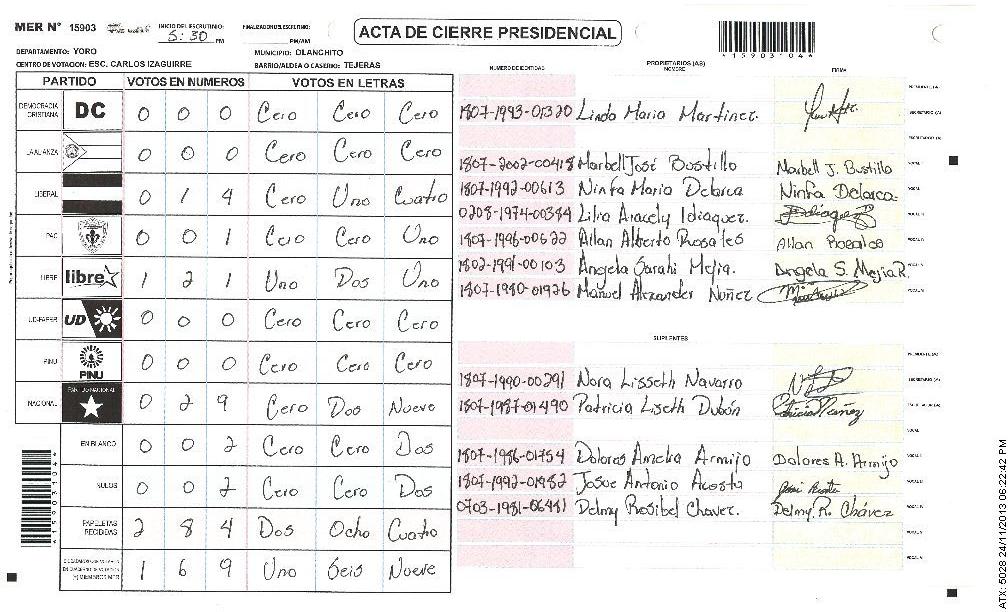 MER N° 15903 INICIO DEL ESCRUTINIO: 5:30 PM FINALIZACION ESCRUTINIO: PM/AM
ACTA DE CIERRE PRESIDENCIAL
*15903104*
DEPARTAMENTO: YORO MUNICIPIO: OLANCHITO
CENTRO DE VOTACION: ESC. CARLOS IZAGUIRRE BARRIO/ALDEA O CASERIO: TEJERAS
PARTIDO VOTOS EN NUMEROS VOTOS EN LETRAS
DEMOCRACIA CRISTIANA DC 0 0 0 Cero Cero Cero
LA ALIANZA 0 0 0 Cero Cero Cero
LIBERAL 0 1 4 Cero Uno Cuatro
PAC 0 0 1 Cero Cero Uno
LIBRE libre 1 2 1 Uno Dos Uno
UD-FAPER UD 0 0 0 Cero Cero Cero
PINU PINU 0 0 0 Cero Cero Cero
NACIONAL PARTIDO NACIONAL 0 2 9 Cero Dos Nueve
EN BLANCO 0 0 2 Cero Cero Dos
NULOS 0 0 2 Cero Cero Dos
PAPELETAS RECIBIDAS 2 8 4 Dos Ocho Cuatro
1 6 9 Uno Seis Nueve
*15903104*
NUMERO DE IDENTIDAD PROPIETARIOS (AS) NOMBRE FIRMA
PRESIDENTE (A)
1807-1993-01320 Linda Maria Martinez. SECRETARIO (A)
ESCRUTADOR (A)
1807-2002-00418 Marbell José Bustillo Marbell J. Bustillo VOCAL I
1807-1992-00613 Ninfa Maria Delarca Ninfa Delarca. VOCAL II
0208-1974-00384 Lilia Aracely Idiaquez. Idiaquez VOCAL III
1807-1996-00622 Allan Alberto Rosales Allan Rosales VOCAL IV
1802-1991-00103 Angela Sarahi Mejia. Angela S. Mejia R. VOCAL V
1807-1980-01926 Manuel Alexander Nuñez VOCAL VI
SUPLENTES
PRESIDENTE (A)
1807-1990-00291 Nora Lisseth Navarro SECRETARIO (A)
1807-1987-01490 Patricia Liseth Dubón ESCRUTADOR (A)
VOCAL I
1807-1986-01754 Dolores Amelia Armijo Dolores A. Armijo VOCAL II
1807-1992-01982 Josue Antonio Acosta VOCAL III
0703-1981-06481 Delmy Rosibel Chavez. Delmy. R. Chávez VOCAL IV
VOCAL V
VOCAL VI
ATX: 5028 24/11/2013 06:22:42 PM